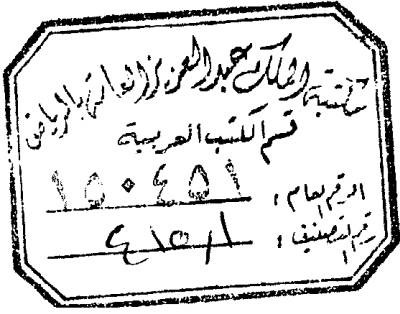 مكتبة الملك عبد العزيز العامة بالرياض
قسم الكتب العربية
الرقم العام : ١٥٠٤٥١
رقم التصنيف : ٤١٥٫١